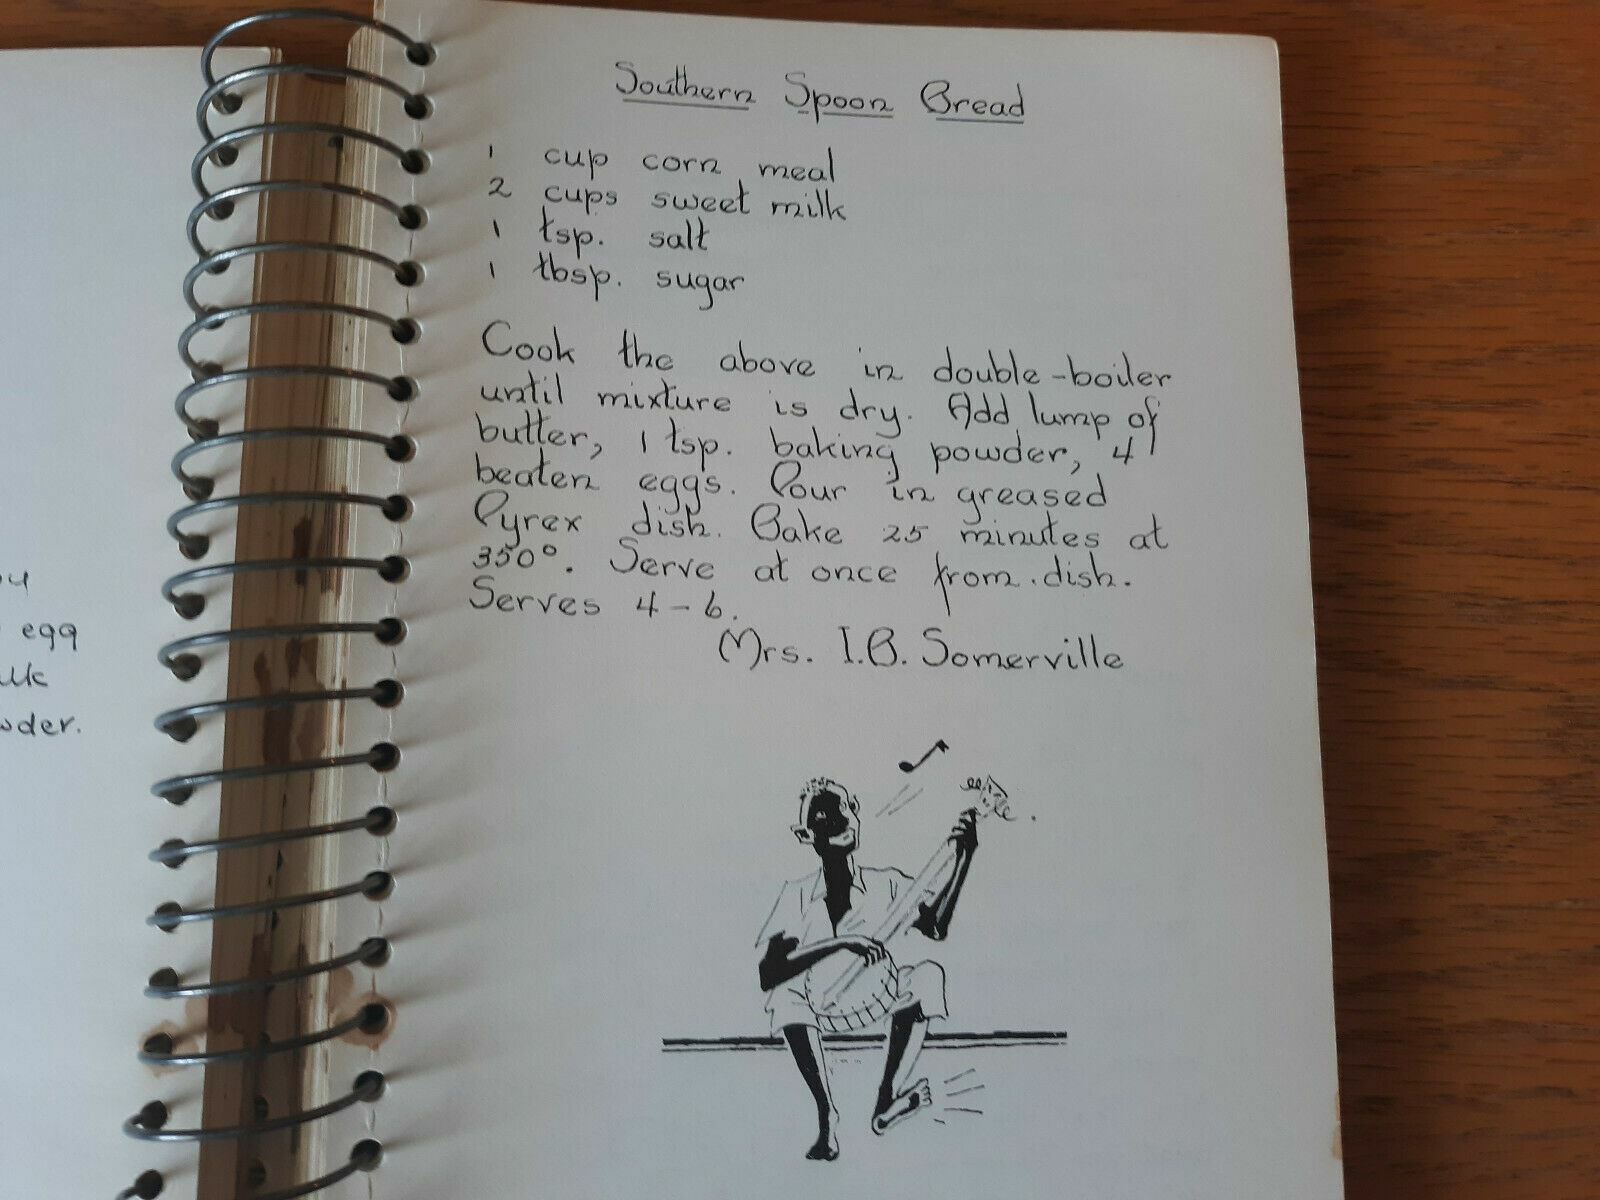 Southern Spoon Bread
1 cup corn meal
2 cups sweet milk
1 tsp. salt
1 tbsp. sugar
Cook the above in double-boiler
until mixture is dry. Add lump of
butter, 1 tsp. baking powder, 4
beaten eggs. Pour in greased
Pyrex dish. Bake 25 minutes at
350°. Serve at once from dish.
Serves 4-6.
Mrs. I.B. Somerville
egg
wder.